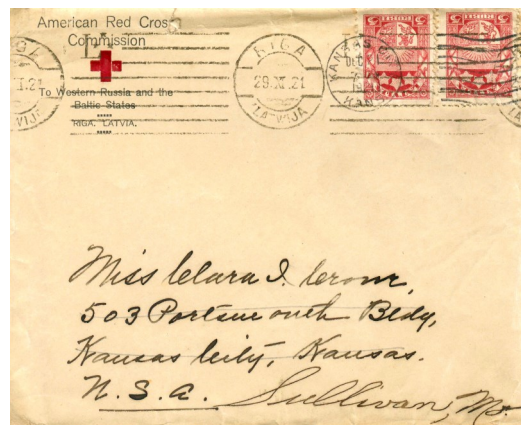 American Red Cross
Commission
To Western Russia and the
Baltic States
RIGA. LATVIA.
RIGA
29.XI.21
LATVIJA
KANSAS CITY
KANS
Miss Clara I. Crow,
503 Portsmouth Bldg,
Kansas City, Kansas.
U.S.A. Sullivan, Mo.